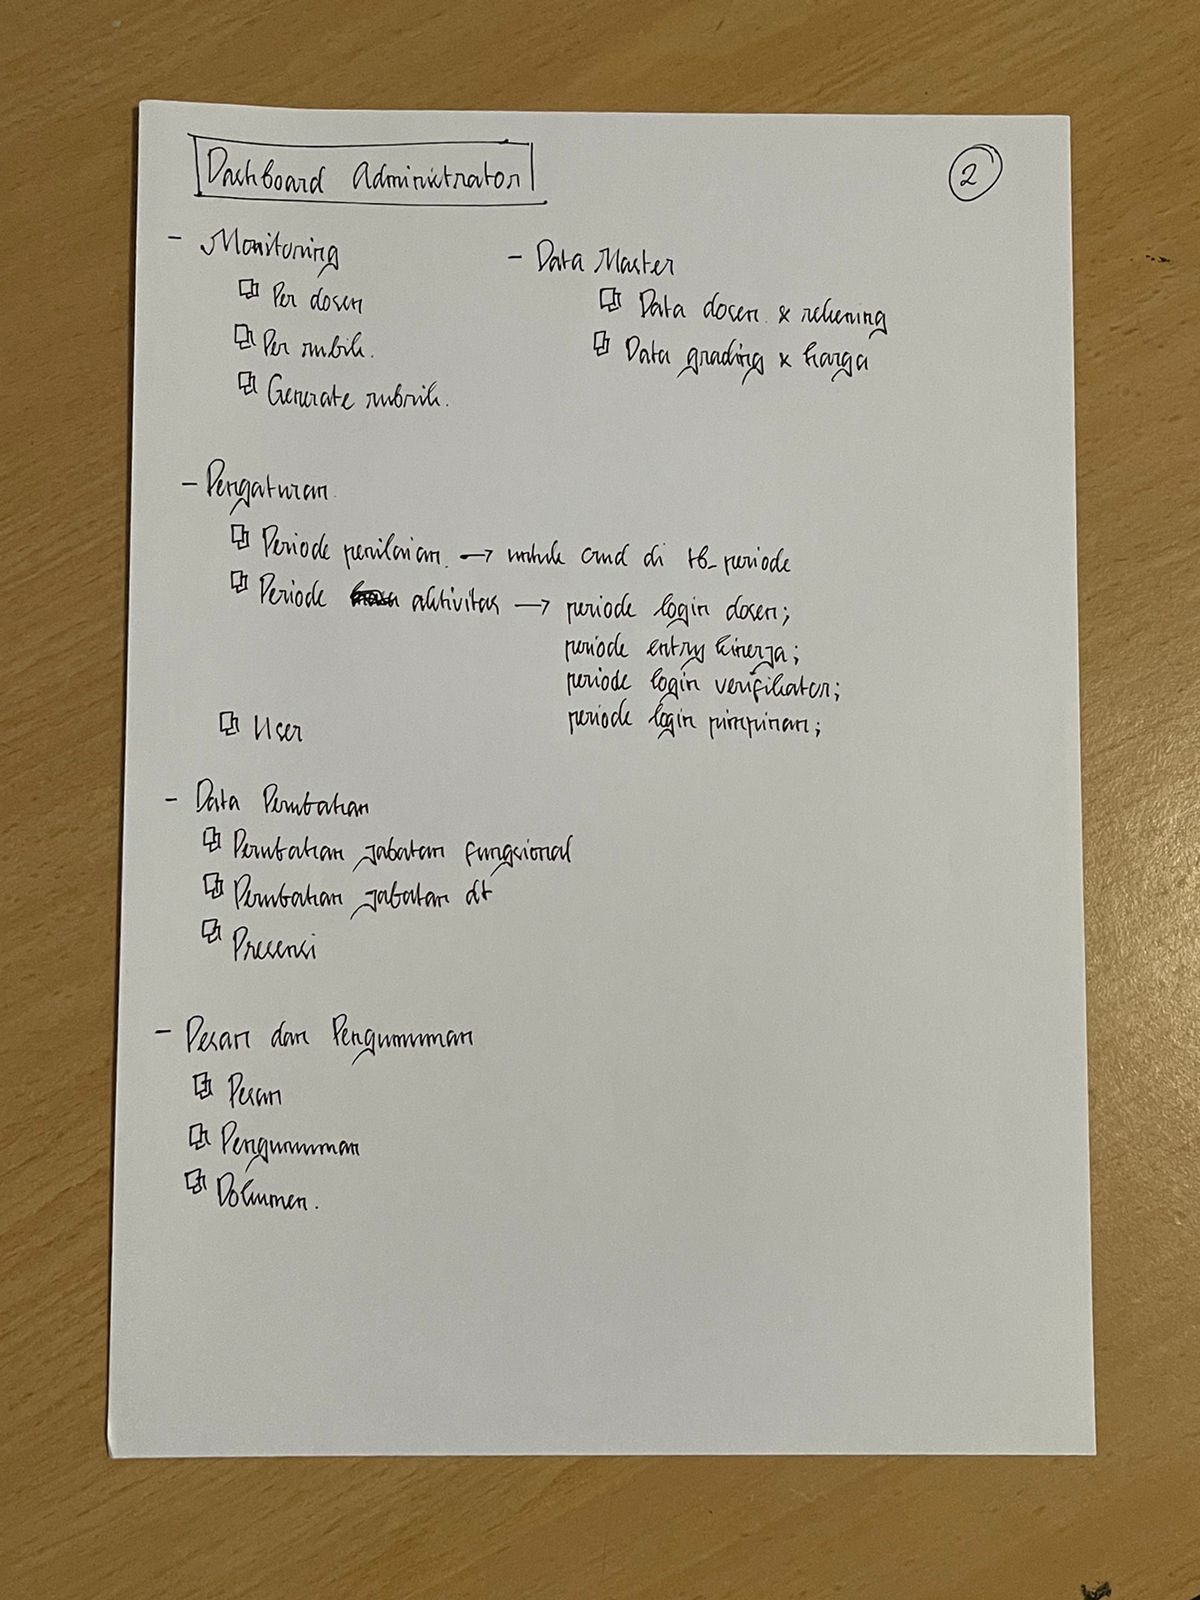 Dashboard Administrator
2
- Monitoring
Per dosen
Per rubik.
Generate rubrik.
- Data Master
Data dosen & rekening
Data grading & harga
- Pengaturan
Periode penilaian → untuk crud di tb_periode
Periode aktivitas → periode login dosen;
periode entry kinerja;
periode login verifikator;
periode login pimpinan;
User
- Data Perubahan
Perubahan jabatan fungsional
Perubahan jabatan dt
Presensi
- Pesan dan Pengumuman
Pesan
Pengumuman
Dokumen.